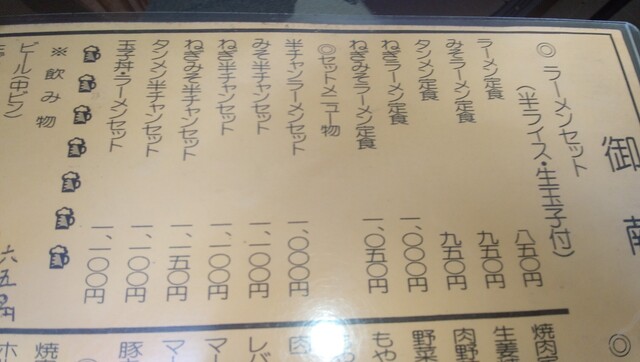 御
◎ ラーメンセット
(半ライス・生玉子付)
ラーメン定食 八五〇円
みそラーメン定食 九五〇円
タンメン定食 九五〇円
ねぎラーメン定食 一、〇〇〇円
ねぎみそラーメン定食 一、〇五〇円
◎セットメニュー物
半チャンラーメンセット 一、〇〇〇円
みそ半チャンセット 一、一〇〇円
ねぎ半チャンセット 一、一〇〇円
ねぎみそ半チャンセット 一、一五〇円
タンメン半チャンセット 一、一〇〇円
玉子丼・ラーメンセット 一、一〇〇円
※飲み物
ビール(中ビン) 六五〇円
焼肉
生姜
肉野
野菜
もや
肉
レバ
マー
マー
豚
焼
ホ